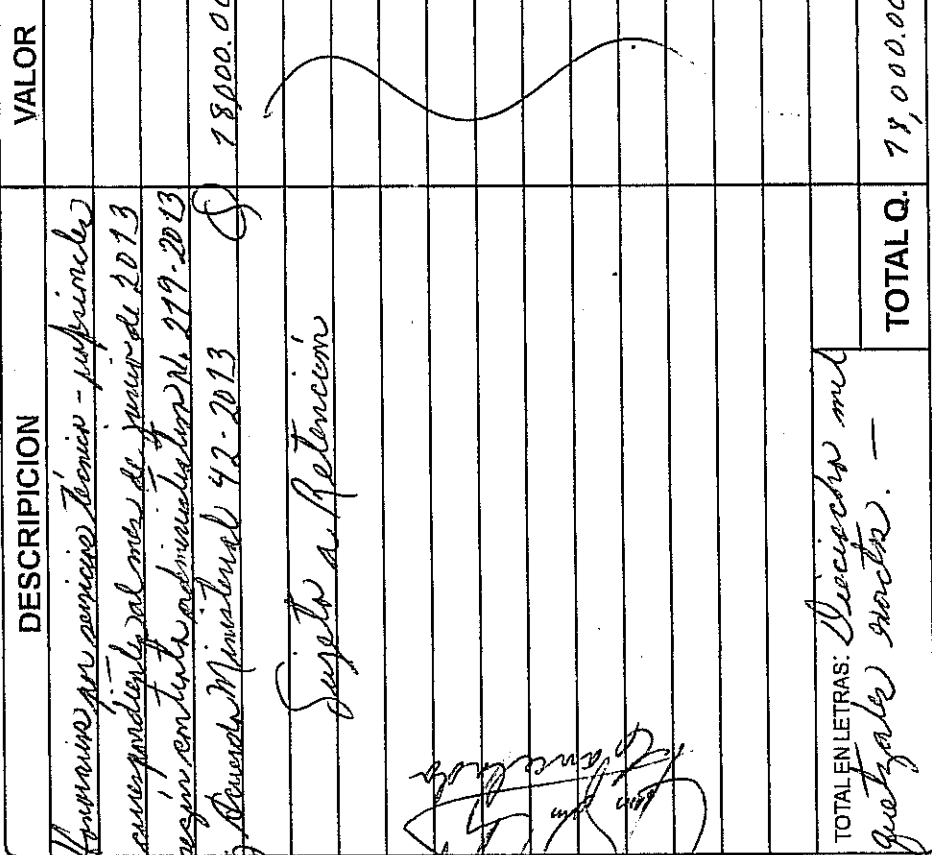 DESCRIPICION
VALOR
Honorarios por servicios técnico - profesionales
correspondientes al mes de junio de 2013
según contrato administrativo No. 219-2013
y Acuerdo Ministerial 42-2013 Q 18000.00
Sujeto a Retención
Cancelado
TOTAL EN LETRAS: Dieciocho mil
quetzales exactos. —
TOTAL Q. 18,000.00